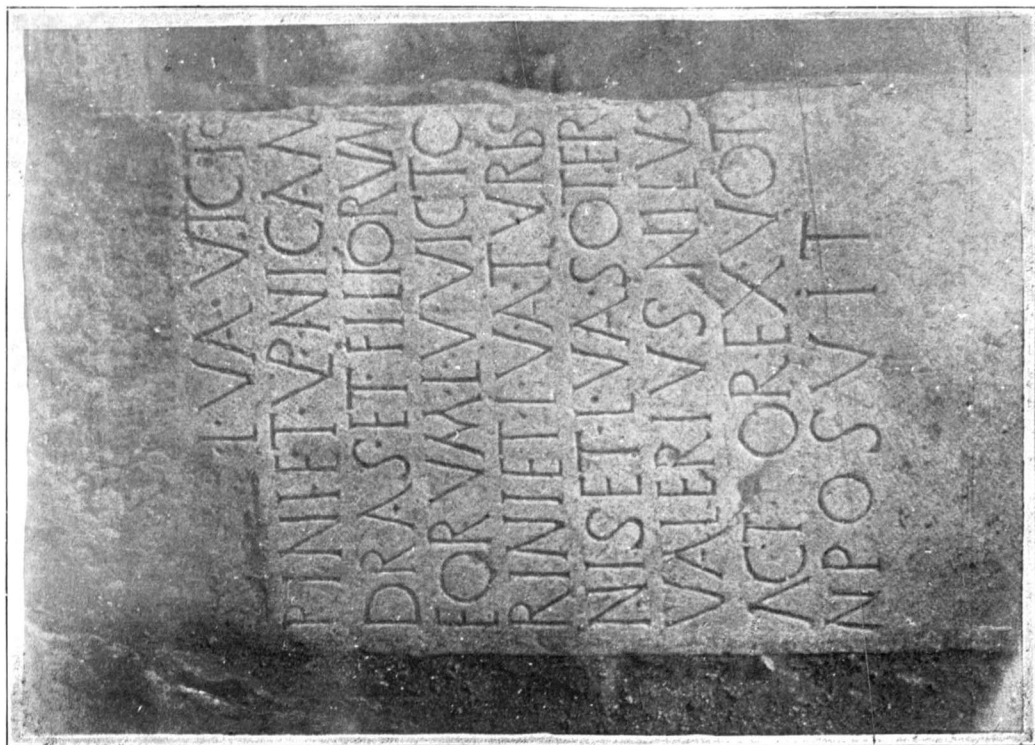 L·VA·VICTO
RINI ET VP·NICAN
DRAS·ET·FILIORVM
EORVM·L·V·VICTO
RINI ET L·VA·TVRBO
NIS ET L·VA·SOTERI
VALERIVS NILVS
ACTOR EX VOT
N POSVIT